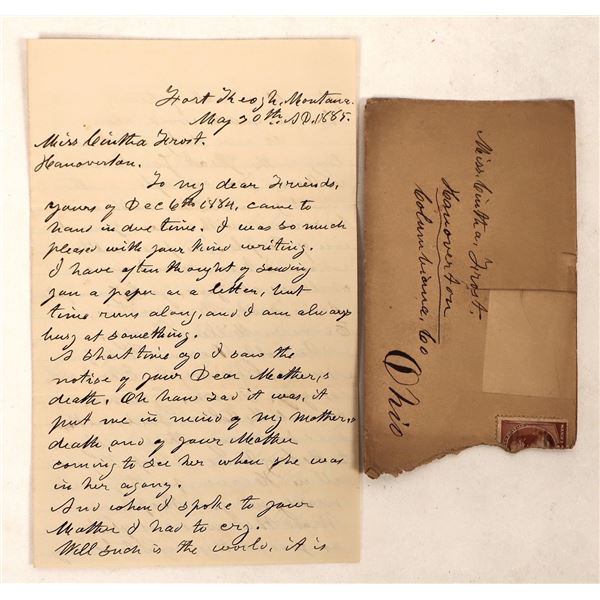 Fort Keogh, Montana.
May 20th A.D. 1885.
Miss Cintha Frost.
Hanoverton.
To my dear Friends,
yours of Dec 6th 1884, came to
hand in due time. I was so much
pleased with your kind writing.
I have often thought of sending
you a paper or a letter, but
time runs along, and I am always
busy at something.
A short time ago I saw the
notice of your Dear Mother,s
death, Oh how sad it was, it
put me in mind of my mother,s
death and of your Mother
coming to see her when she was
in her agony.
And when I spoke to your
Mother I had to cry.
Will such is the world, it is
Miss. Cintha, Frost.
Hanoverton
Columbiana, Co
Ohio